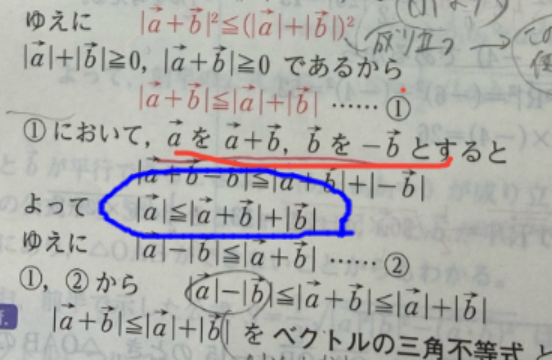 ゆえに |a⃗+b⃗|²≦(|a⃗|+|b⃗|)²
|a⃗|+|b⃗|≧0, |a⃗+b⃗|≧0 であるから
|a⃗+b⃗|≦|a⃗|+|b⃗| …… ①
①において, a⃗ を a⃗+b⃗, b⃗ を −b⃗ とすると
|a⃗+b⃗−b⃗|≦|a⃗+b⃗|+|−b⃗|
よって |a⃗|≦|a⃗+b⃗|+|b⃗|
ゆえに |a⃗|−|b⃗|≦|a⃗+b⃗| …… ②
①, ②から |a⃗|−|b⃗|≦|a⃗+b⃗|≦|a⃗|+|b⃗|
|a⃗+b⃗|≦|a⃗|+|b⃗| を ベクトルの三角不等式 と